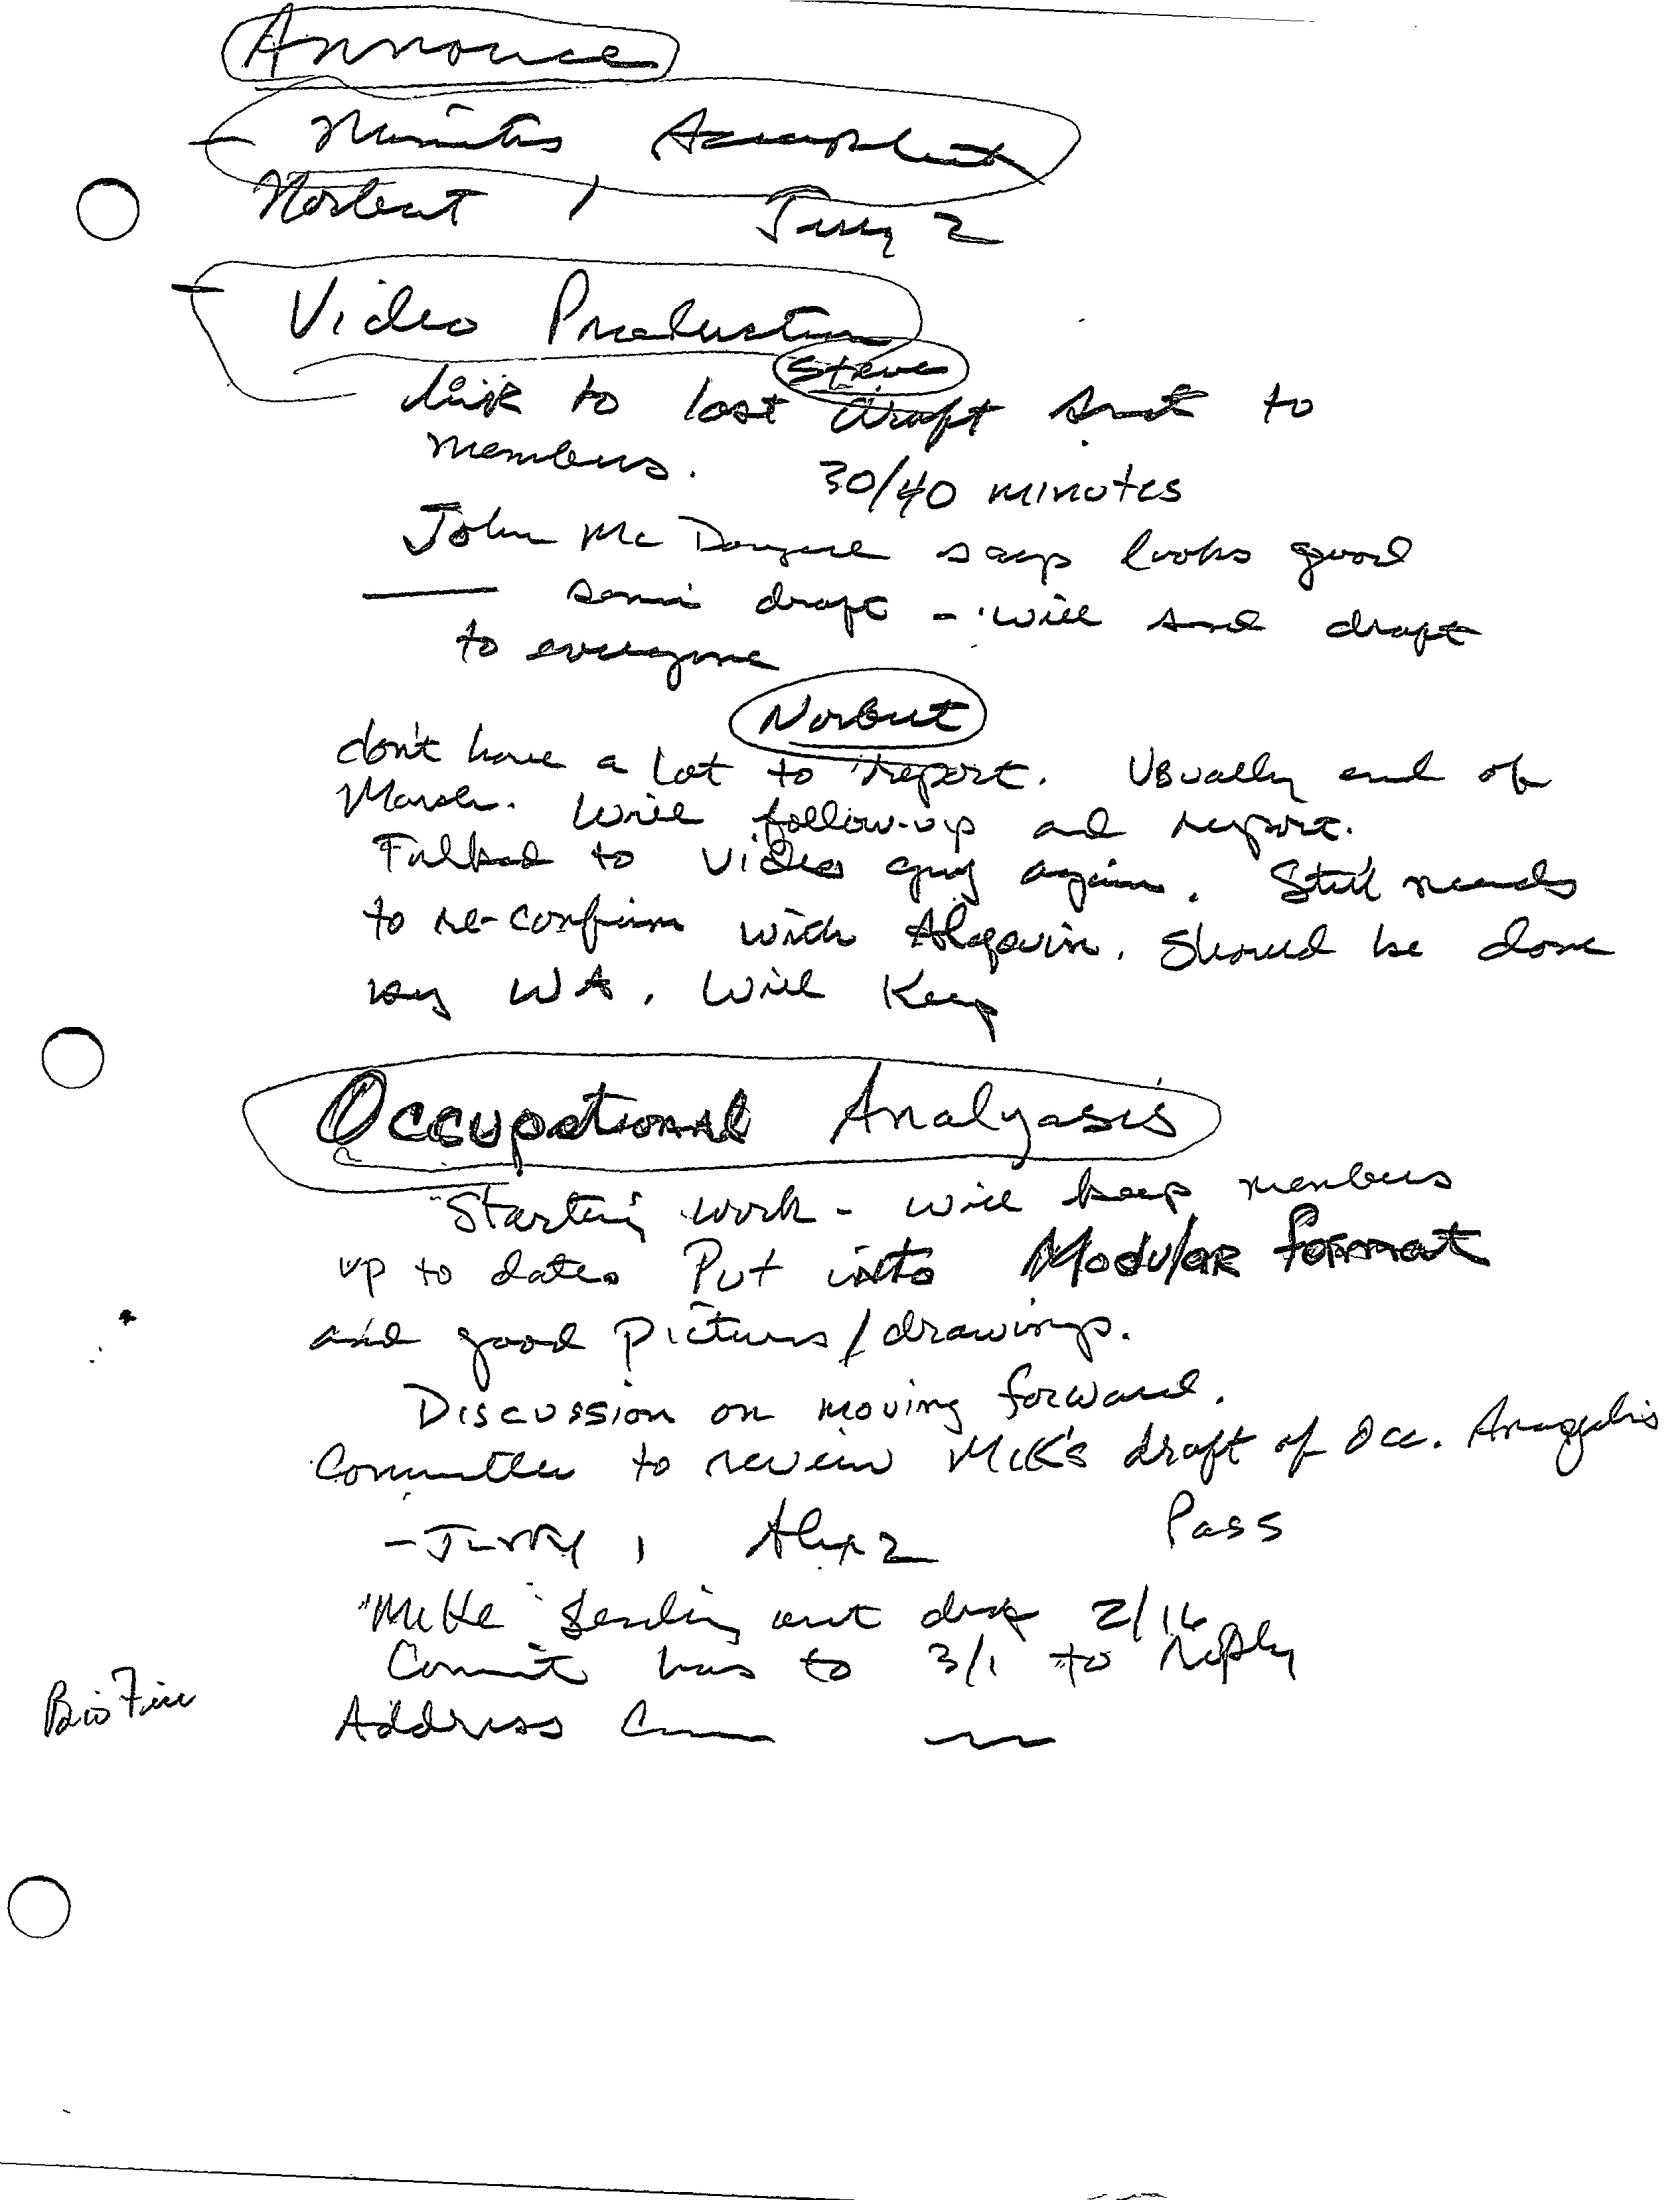 Annouce
- Minutes
Norbert 1 Jerry 2
- Video Production
Steve
link to last draft sent to
members. 30/40 minutes
John Mc says looks good
semi draft - will send draft
to everyone
Norbert
don't have a lot to report. Usually end of
March. Will follow-up and report.
Talked to video guy again. Still needs
to re-confirm with . Should be done
by WA. Will Keep
Occupational Analyasis
Starting work - will keep members
up to date. Put into Modular format
and good pictures/drawings.
Discussion on moving forward.
Committee to review McK's draft of Occ.
- Jerry 1 Alex 2 Pass
Mike sending out draft 2/16
Commit has to 3/1 to reply
Address